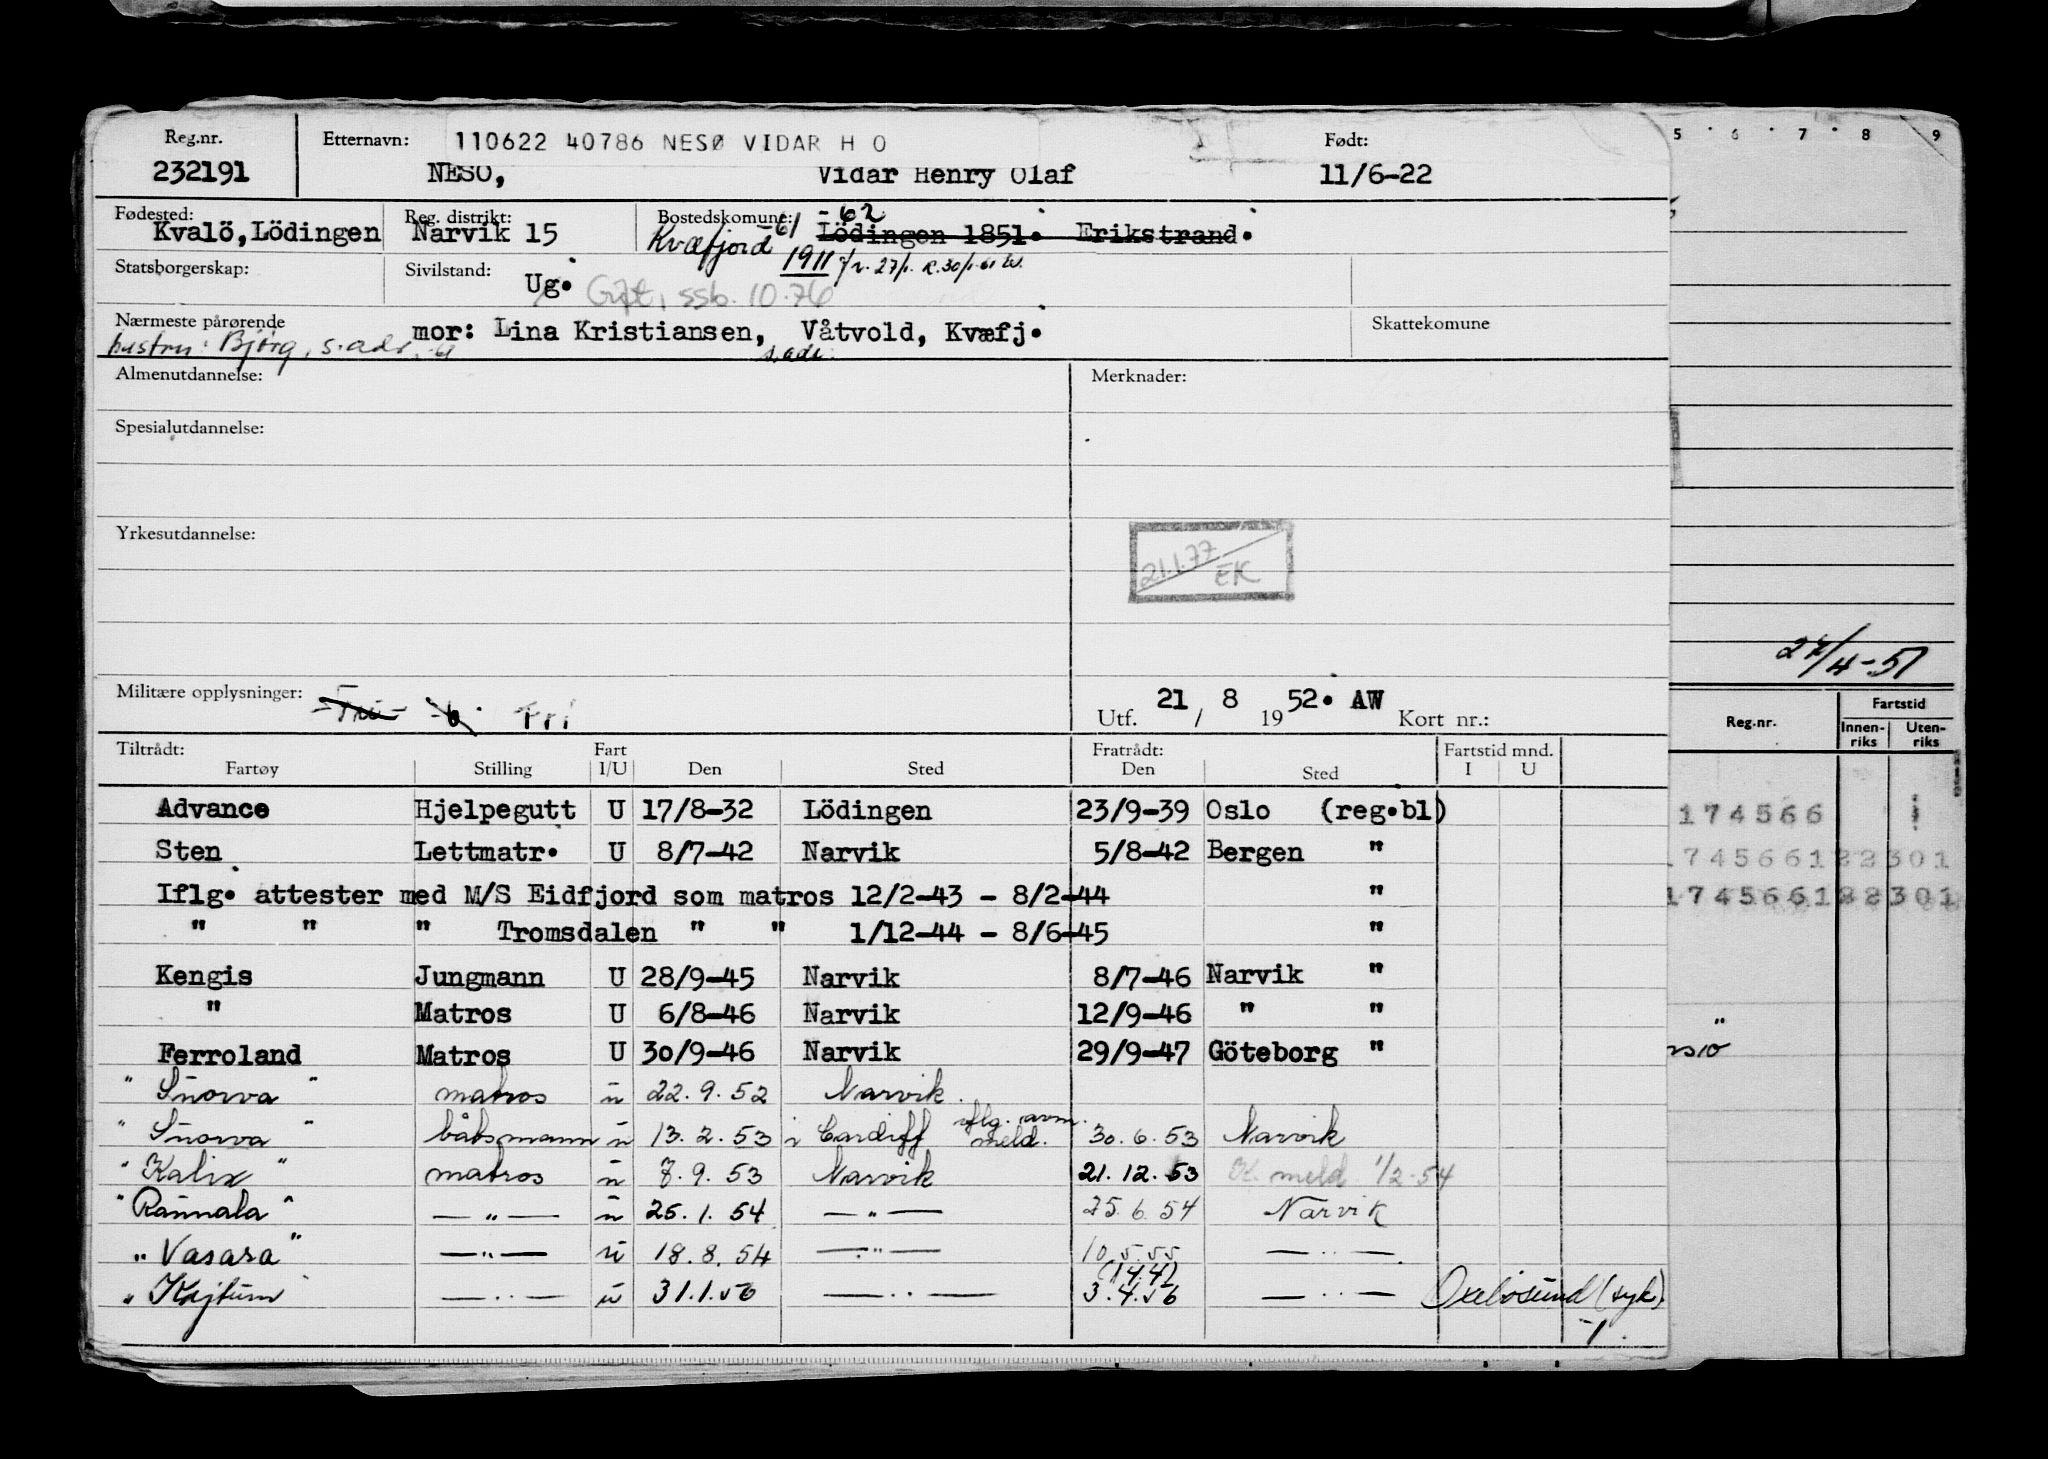 Reg.nr. Etternavn: 110622 40786 NESØ VIDAR H O Født:
232191 NESÖ, Vidar Henry Olaf 11/6-22
Fødested: Reg. distrikt: Bostedskomune: -61 -62
Kvalö, Lödingen Narvik 15 Kvæfjord Lödingen 1851. Erikstrand.
1911
Statsborgerskap: Sivilstand: Ug. Gift, ssb. 10.76
Nærmeste pårørende mor: Lina Kristiansen, Våtvold, Kvæfj. Skattekomune
hustru: Bjørg, s.adr. s.adr.
Almenutdannelse: Merknader:
Spesialutdannelse:
Yrkesutdannelse:
21.1.77 EK
Militære opplysninger: -Fri- Fri
Utf. 21 / 8 19 52. AW Kort nr.:
Tiltrådt: Fart Fratrådt: Fartstid mnd.
Fartøy Stilling I/U Den Sted Den Sted I U
Advance Hjelpegutt U 17/8-32 Lödingen 23/9-39 Oslo (reg.bl)
Sten Lettmatr. U 8/7-42 Narvik 5/8-42 Bergen "
Iflg. attester med M/S Eidfjord som matros 12/2-43 - 8/2-44 "
" " " Tromsdalen " " 1/12-44 - 8/6-45 "
Kengis Jungmann U 28/9-45 Narvik 8/7-46 Narvik "
" Matros U 6/8-46 Narvik 12/9-46 " "
Ferroland Matros U 30/9-46 Narvik 29/9-47 Göteborg "
"Snorva" matros u 22.9.52 Narvik.
"Snorva" båtsmann u 13.2.53 i Cardiff iflg. avm. meld. 30.6.53 Narvik
"Kalix" matros u 7.9.53 Narvik 21.12.53 K. meld 1/2-54
"Rånnala" —"— u 25.1.54 —"— 25.6.54 Narvik
"Vasara" —"— u 18.8.54 —"— 10.5.55 —"—
"Kajtum" —"— u 31.1.56 —"— (14.4) 3.4.56 —"— Oxelösund (syk).
-1.
5 6 7 8 9
27/4-51
Reg.nr. Fartstid
Innen-riks Uten-riks
174566
174566122301
174566122301
"